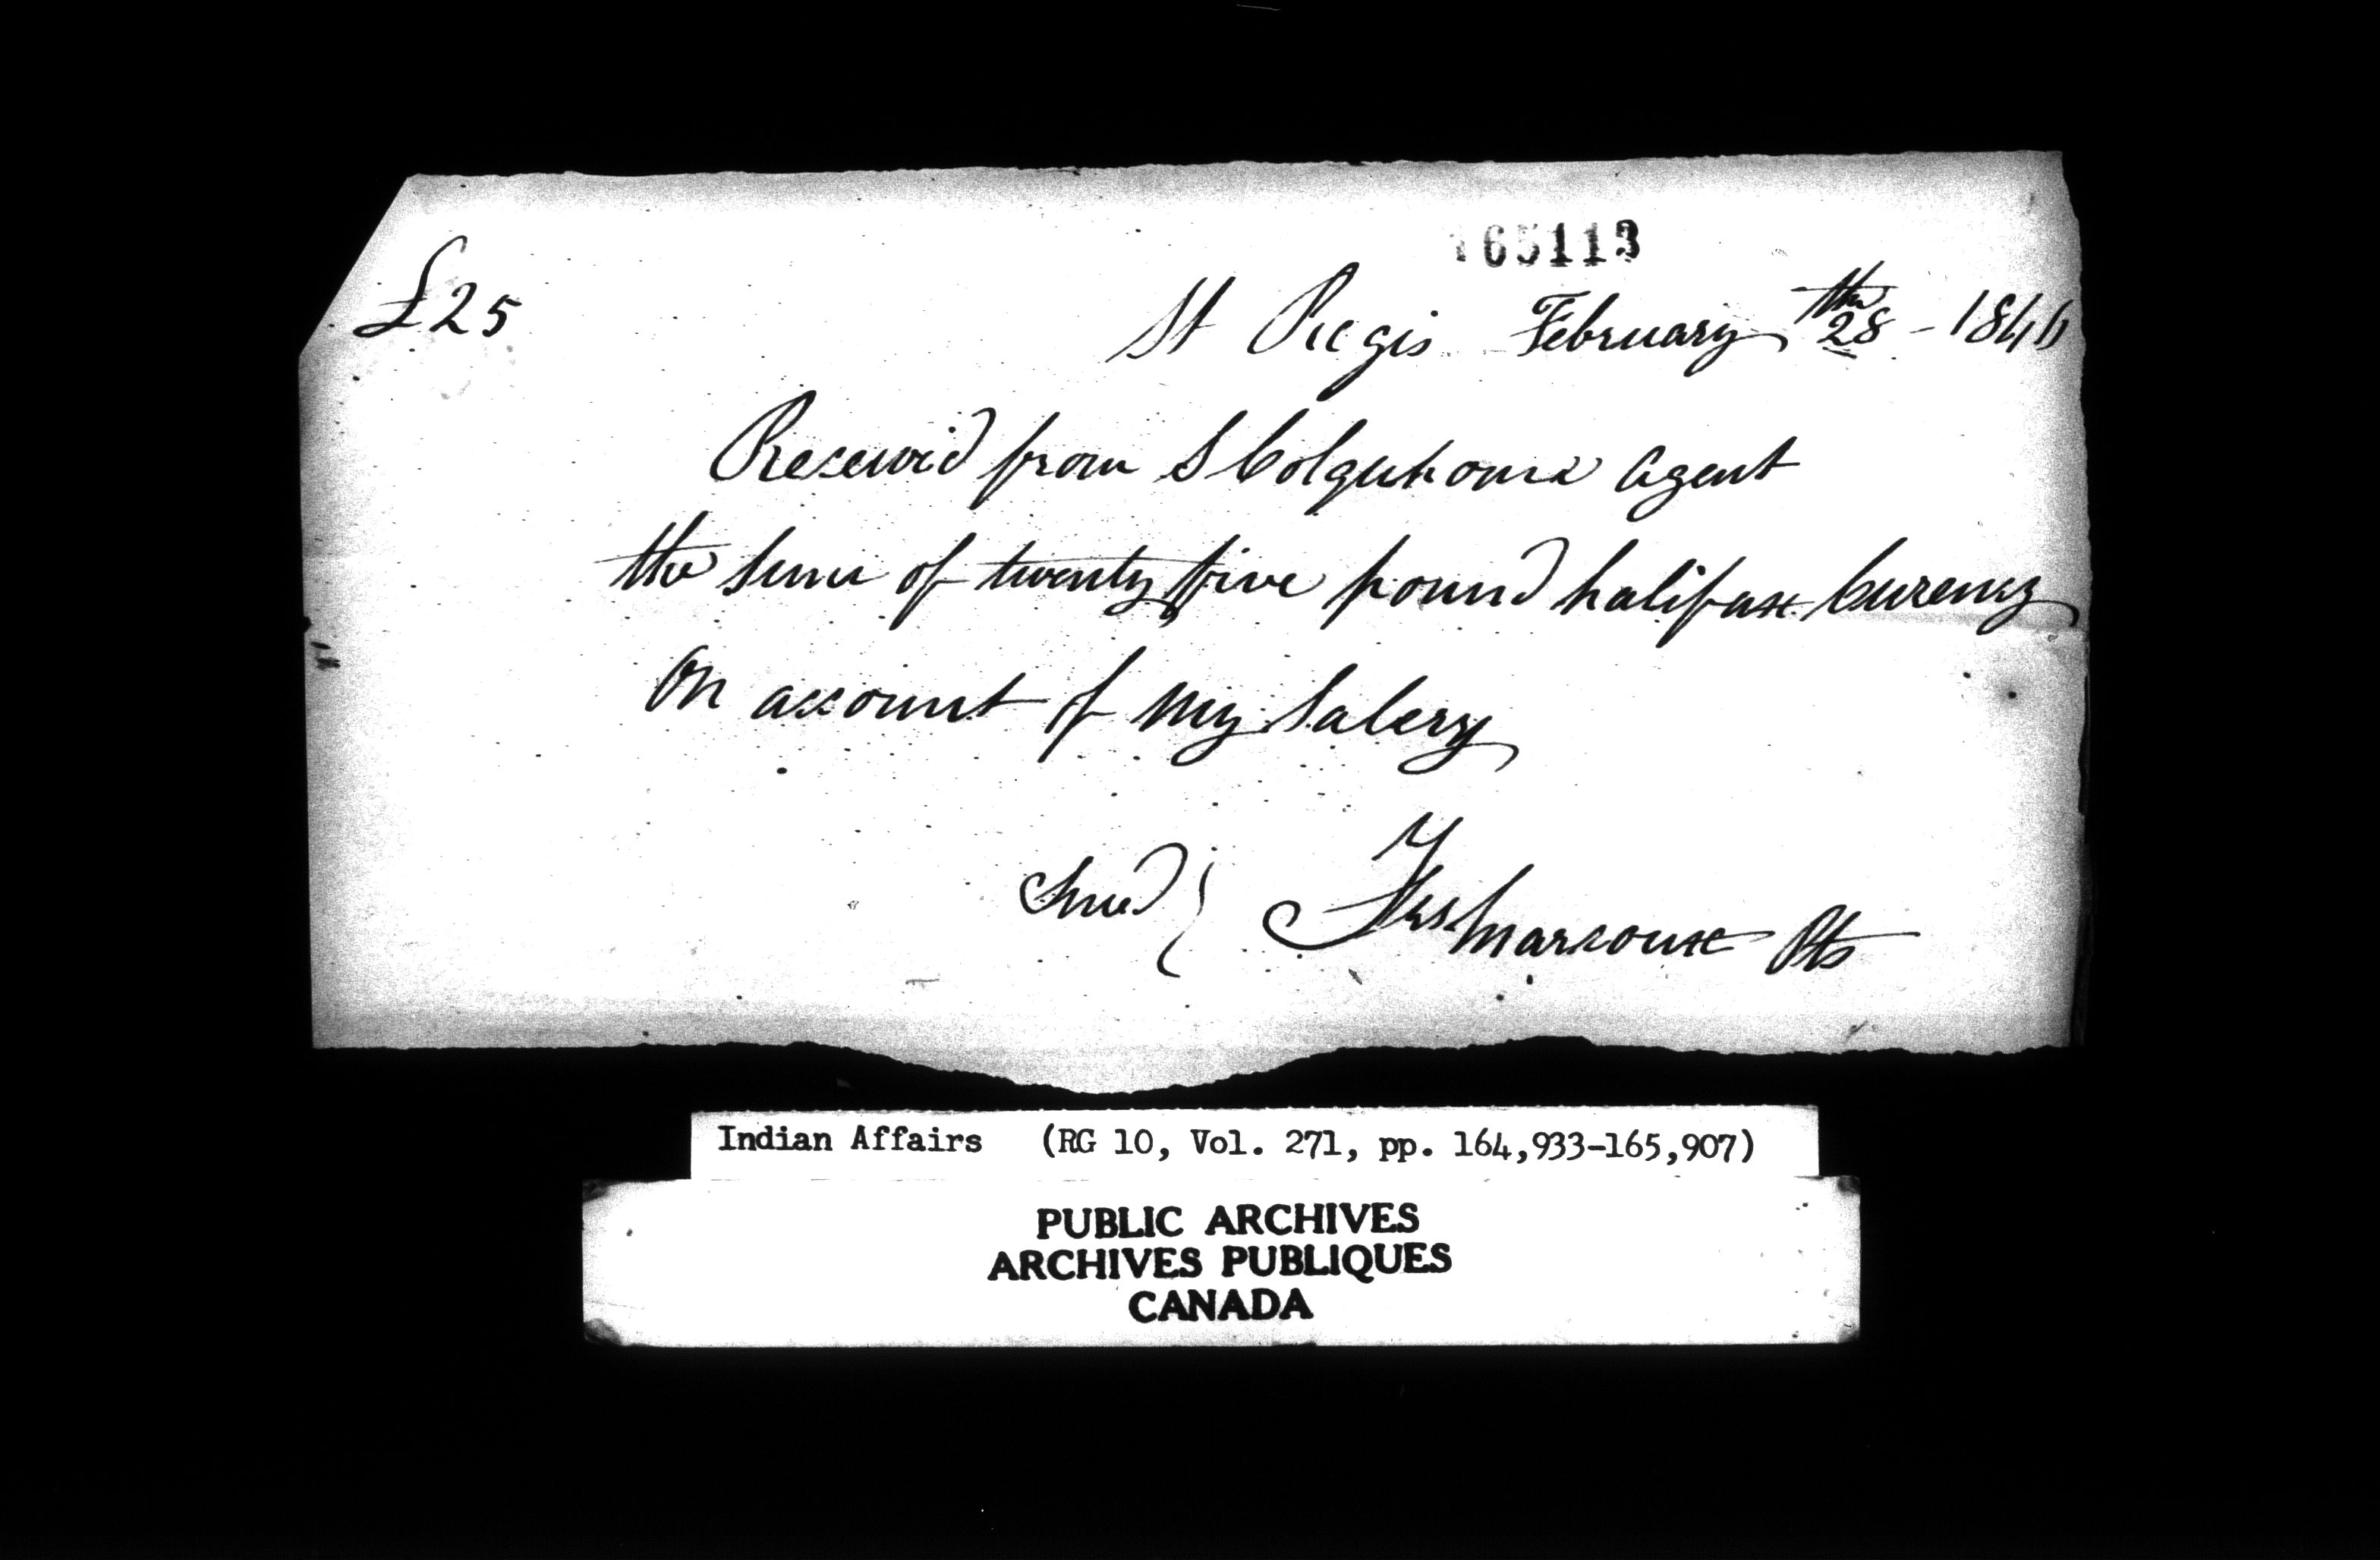 165113
£25
St Regis February 28th - 1846
Receiveid from S Colquhoune Agent
the Sum of twenty five pound halifax Curency
On account of my Salery
Frs Marcoux Pts
Indian Affairs (RG 10, Vol. 271, pp. 164,933-165,907)
PUBLIC ARCHIVES
ARCHIVES PUBLIQUES
CANADA